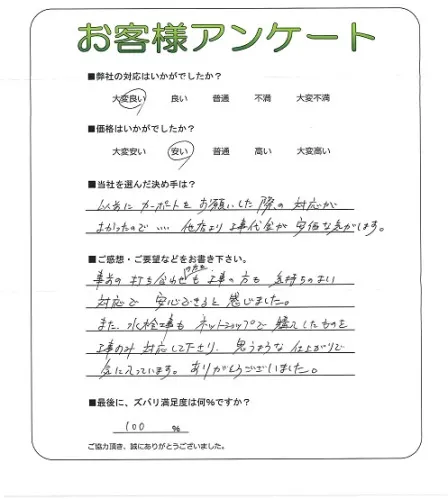 お客様アンケート
■弊社の対応はいかがでしたか?
大変良い 良い 普通 不満 大変不満
■価格はいかがでしたか?
大変安い 安い 普通 高い 大変高い
■当社を選んだ決め手は?
以前に カーポートを お願いした 際の 対応が
よかったので… 他店より 工事代金が 安価な気がします。
■ご感想・ご要望などをお書き下さい。
事前の 打ち合わせも 工事の方も 気持ちのよい
対応で 安心できると 感じました。
また、水栓工事も ネットショップで 購入したものを
工事のみ 対応して下さり、思うような 仕上がりで
気に入っています。ありがとうございました。
■最後に、ズバリ満足度は何%ですか?
100 %
ご協力頂き、誠にありがとうございました。